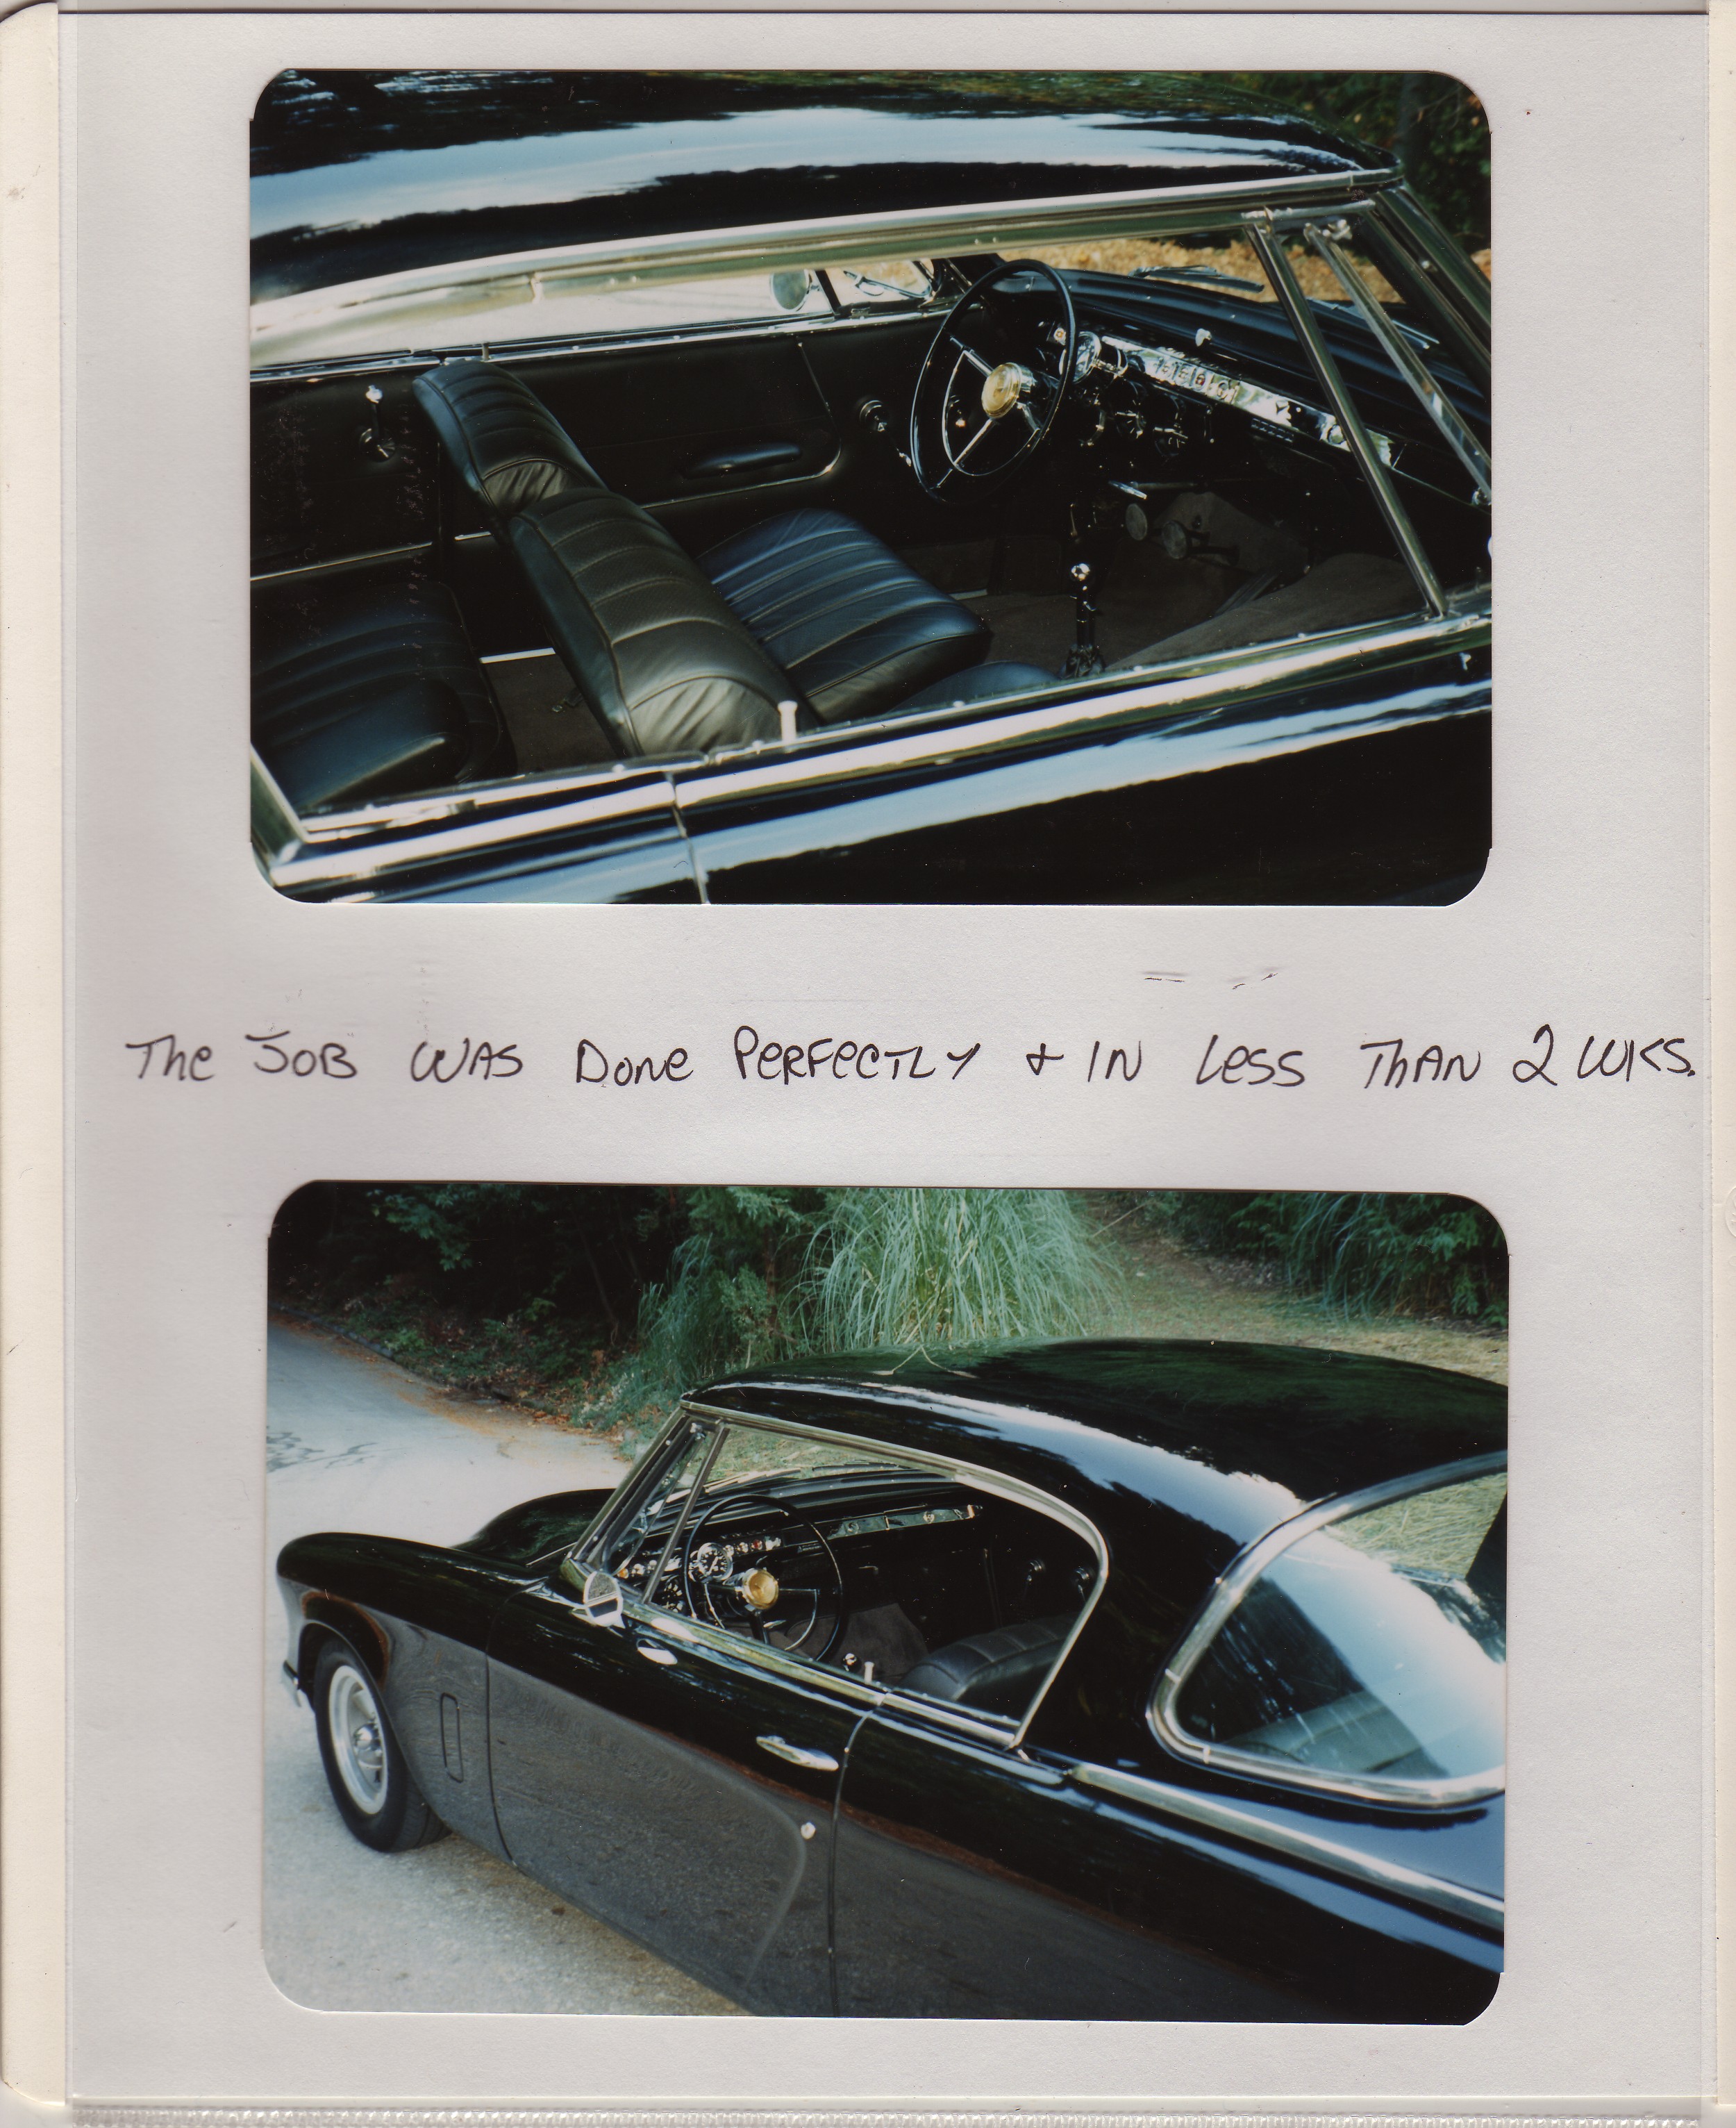 The JOB WAS Done PerFectLy & IN Less Than 2 WKS.